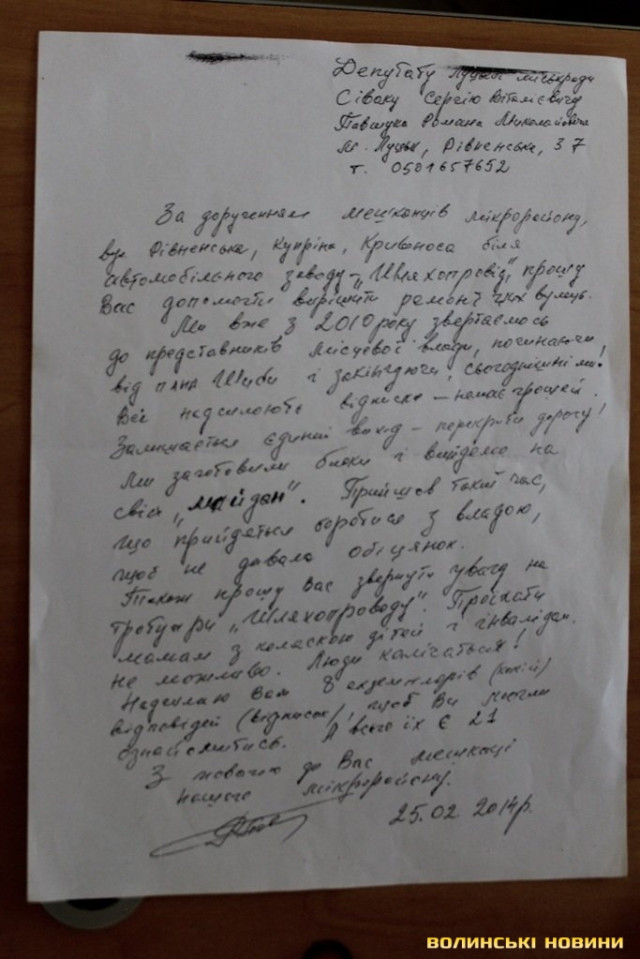 Депутату Луцької міськради
Сіваку Сергію Віталієвичу
Павлчука Романа Миколайовича
м. Луцьк, Рівненська, 37
т. 0501657652
За дорученням мешканців мікрорайону,
вул Рівненська, Купріна, Кривоноса біля
автомобільного заводу "Шляхопровід", прошу
Вас допомогти вирішити ремонт цих вулиць.
Ми вже з 2010 року звертаємось
до представників місцевої влади, починаючи
від пана Шиби і закінчуючи сьогоднішніми!
Всі надсилають відписки – немає грошей.
Залишається єдиний вихід – перекрити дорогу!
Ми заготовили блоки і вийдемо на
свій "майдан". Прийшов такий час,
що прийдеться боротися з владою,
щоб не давала обіцянок.
Також прошу Вас звернути увагу на
тротуари "Шляхопроводу". Проїхати
мамам з коляскою дітей і інвалідам
не можливо. Люди калічаться!
Надсилаю Вам 8 екземплярів (копій)
відповідей (відписок), щоб Ви могли
ознайомитись. А всього їх є 21
З повагою до Вас мешканці
нашого мікрорайону.
25.02 2014р.
ВОЛИНСЬКІ НОВИНИ